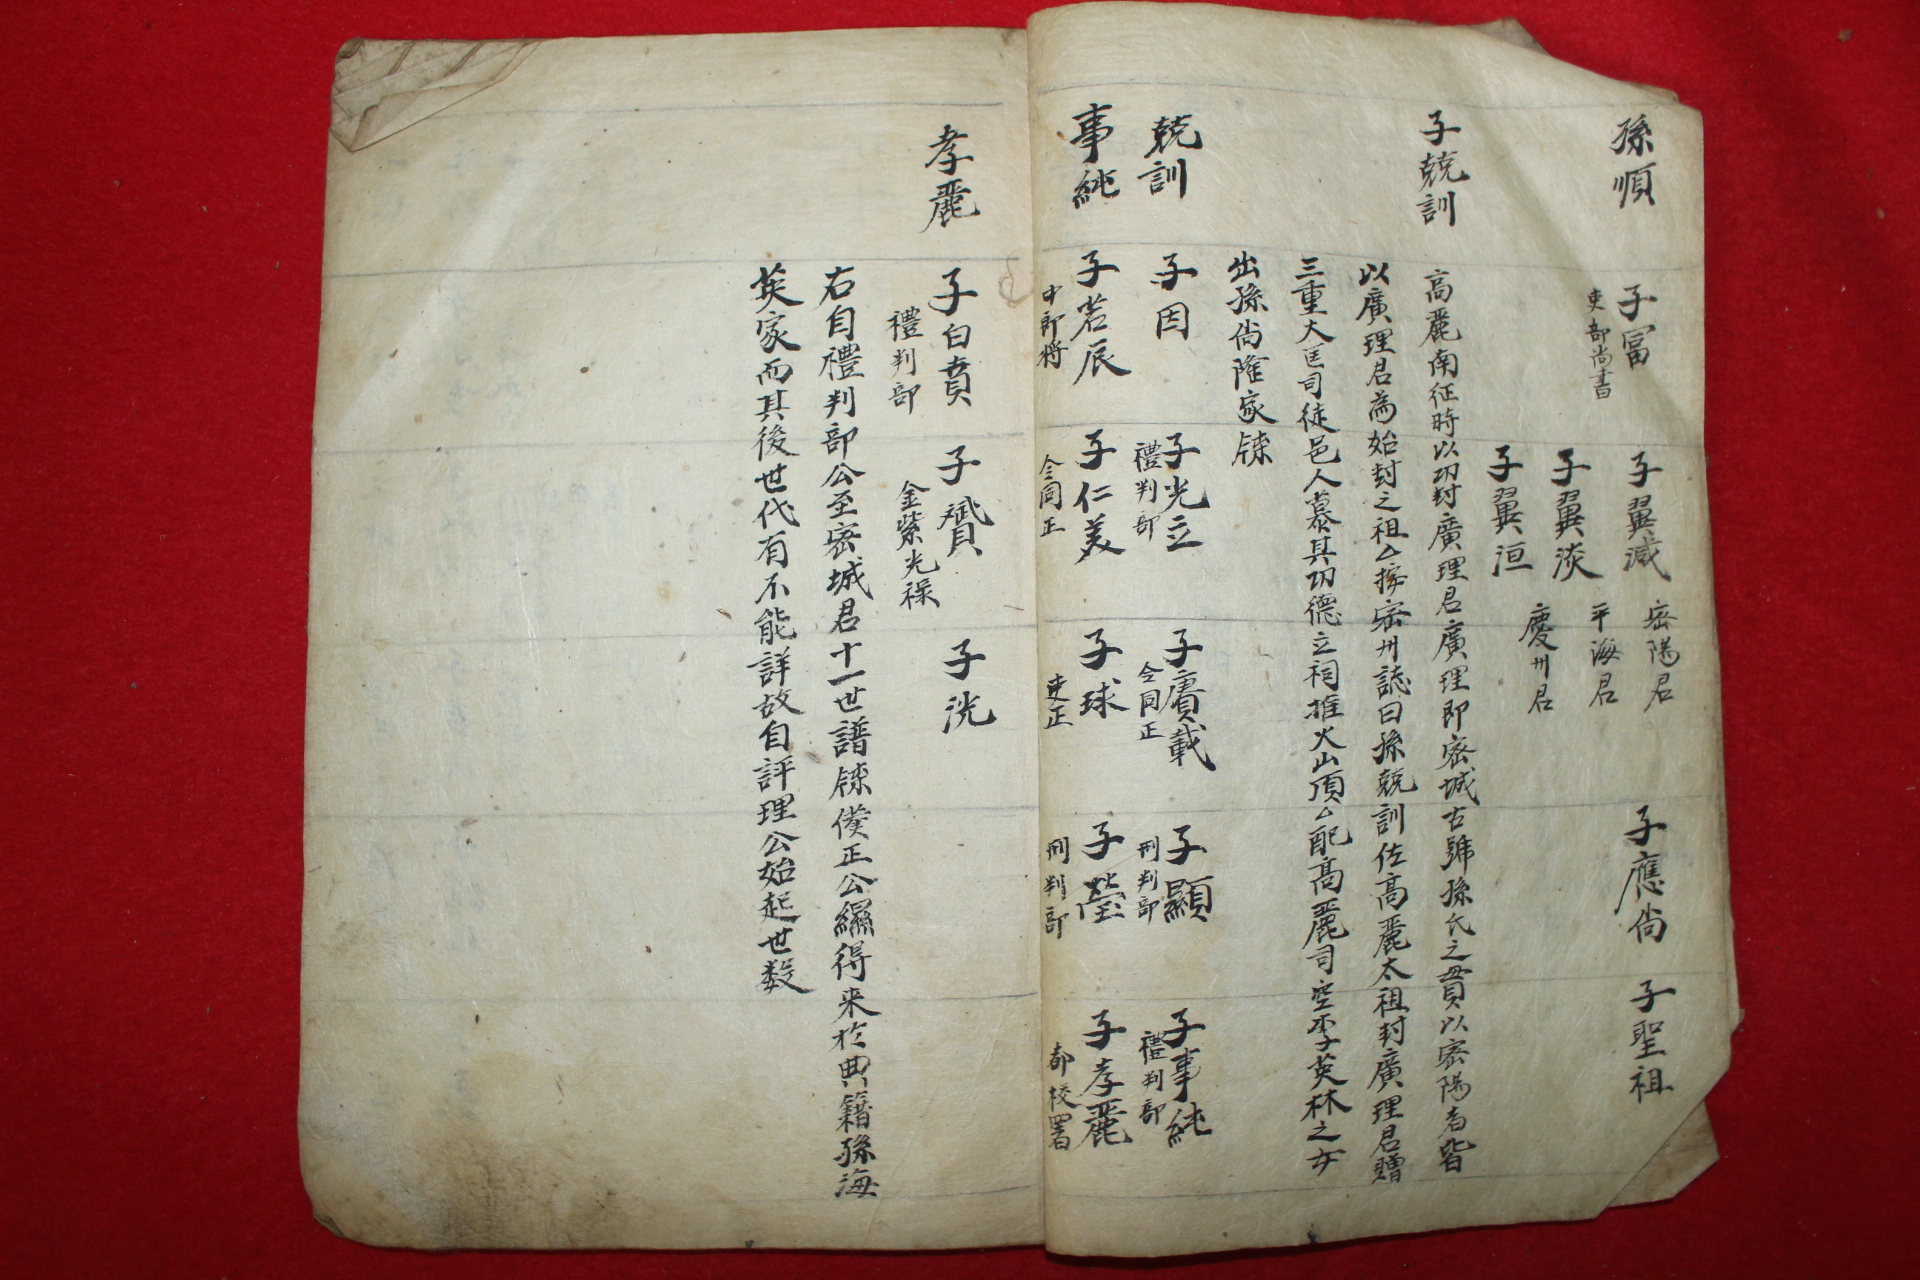 孫順 子冨 吏部尚書 子翼減 密陽君 子應尙 子聖祖
子翼淡 平海君
子翼洹 慶州君
子兢訓 高麗南征時以功封廣理君廣理即密城古號孫氏之貫以密陽者皆
以廣理君為始封之祖△按密州誌曰孫兢訓佐高麗太祖封廣理君贈
三重大匡司徒邑人慕其功德立祠推火山頂△配高麗司空李英林之女
出孫尙隆家錄
兢訓 子因 子光立 禮判部 子賡載 令同正 子顯 刑判部 子事純 禮判部
事純 子若辰 中郎將 子仁美 令同正 子球 吏正 子瑩 刑判部 子孝麗 都校署
孝麗 子白賁 禮判部 子贇 金紫光祿 子洸
右自禮判部公至密城君十一世譜錄僕正公繼得来於典籍孫海
英家而其後世代有不能詳故自評理公始起世数